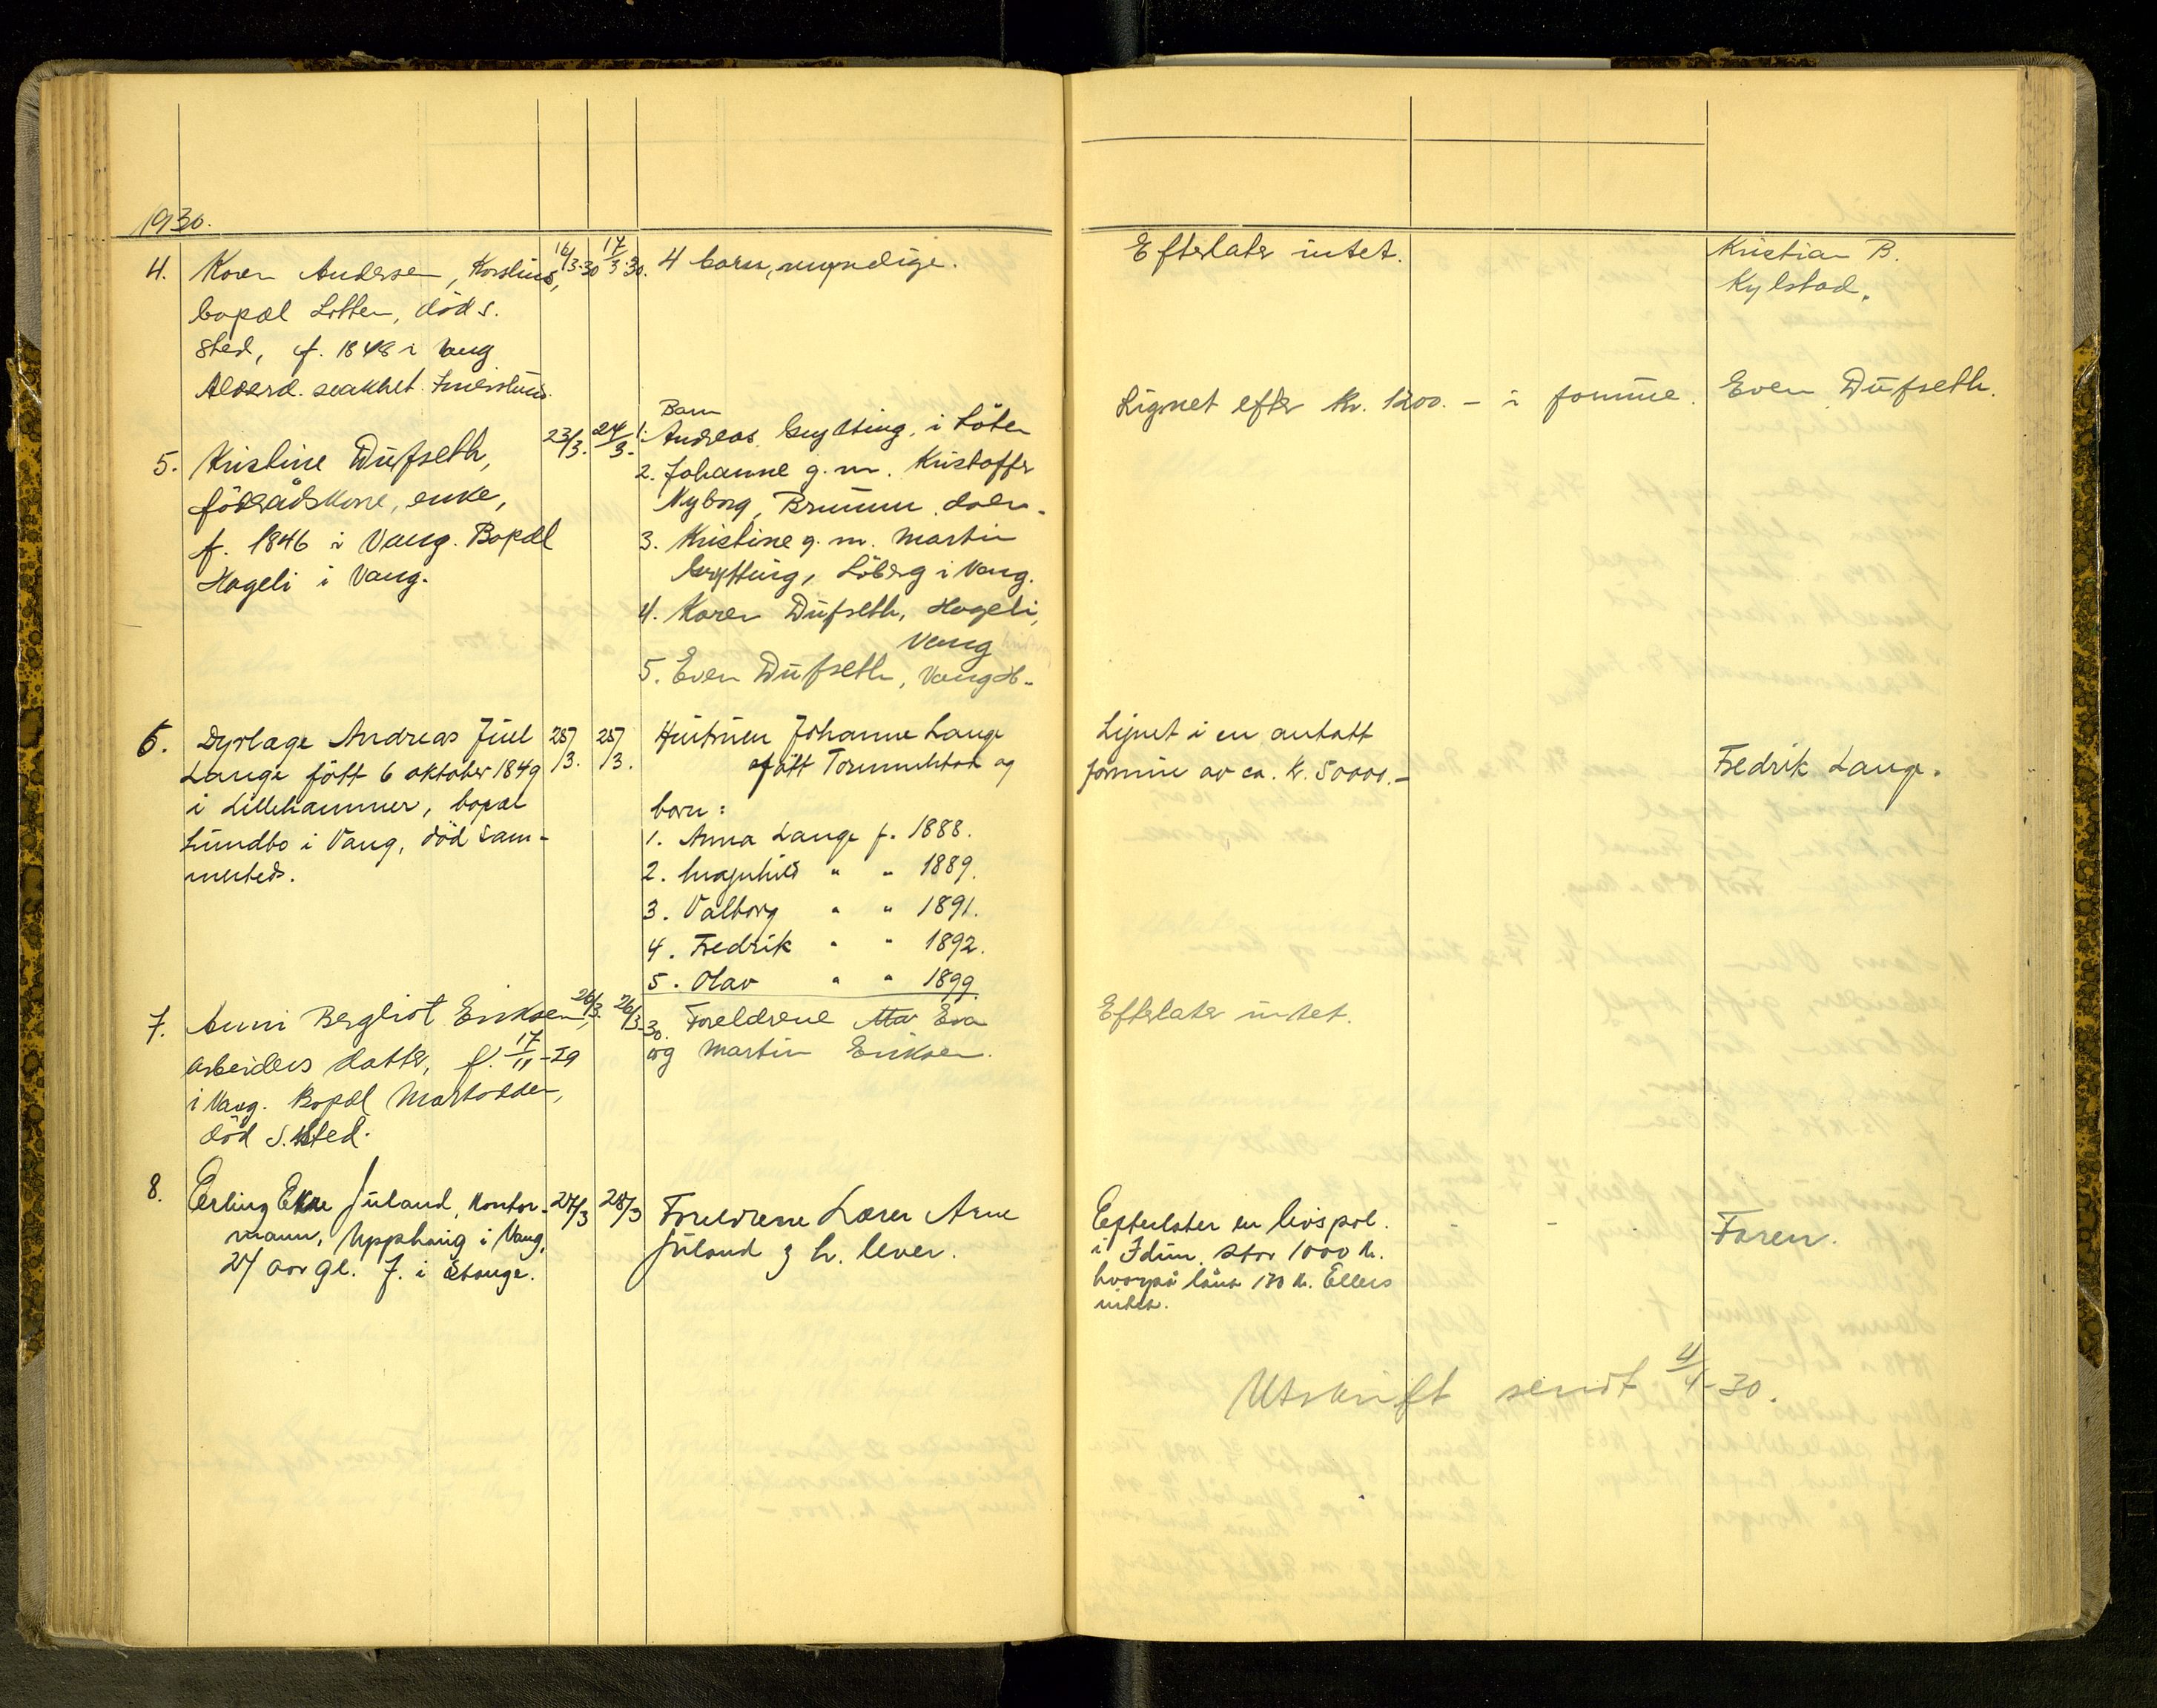 1930.
4. Karen Andersen, Korslund, 16/3-30 17/3-30. 4 barn, myndige. Efterlater intet. Kristian B.
bopæl Lotten, död s. Kylstad.
sted, f. 1848 i Vang
Alderd. svakhet.
5. Kristine Dufseth, 23/3. 24/3.
föderådskone, enke,
f. 1846 i Vang. Bopæl
Hageli i Vang.
Barn
1. Andreas Grytting, i Löten
2. Johanne g.m. Kristoffer
Nyborg, Brumunddalen.
3. Kristine g.m. Martin
Grytting, Löberg i Vang.
4. Karen Dufseth, Hageli,
Vang
5. Even Dufseth, Vang H.
Lignet efter kr. 1200.- i formue. Even Dufseth.
6. Dyrlæge Andreas Juel 25/3. 25/3.
Lange födt 6 oktober 1849
i Lillehammer, bopæl
Lundbo i Vang, död sam-
mesteds.
Hustruen Johanne Lange
født Tommelstad og
barn:
1. Anna Lange f. 1888.
2. Magnhild " " 1889.
3. Valborg " " 1891.
4. Fredrik " " 1892.
5. Olav " " 1899.
Lignet i en antatt
formue av ca. kr. 50000.-
Fredrik Lange.
7. Anni Bergliot Eriksen, 26/3. 26/3-30.
arbeiders datter, f. 17/11-29
i Vang. Bopæl Martodden,
död s.sted.
Foreldrene Eva
og Martin Eriksen.
Efterlater intet.
8. Erling Ekre Juland, kontor- 27/3 28/3
mann, Upphaug i Vang,
27 aar gl. F. i Stange.
Foreldrene Lærer Arne
Juland & h. lever.
Efterlater en livspol.
i Idun stor 1000 kr.
hvorpå lånt 170 kr. Ellers
intet.
Faren.
Utskrift sendt 4/4-30.